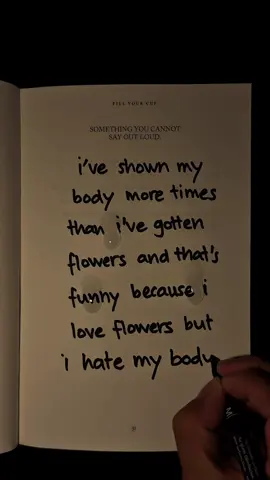 FILL YOUR CUP
SOMETHING YOU CANNOT
SAY OUT LOUD.
i've shown my
body more times
than i've gotten
flowers and that's
funny because i
love flowers but
i hate my body